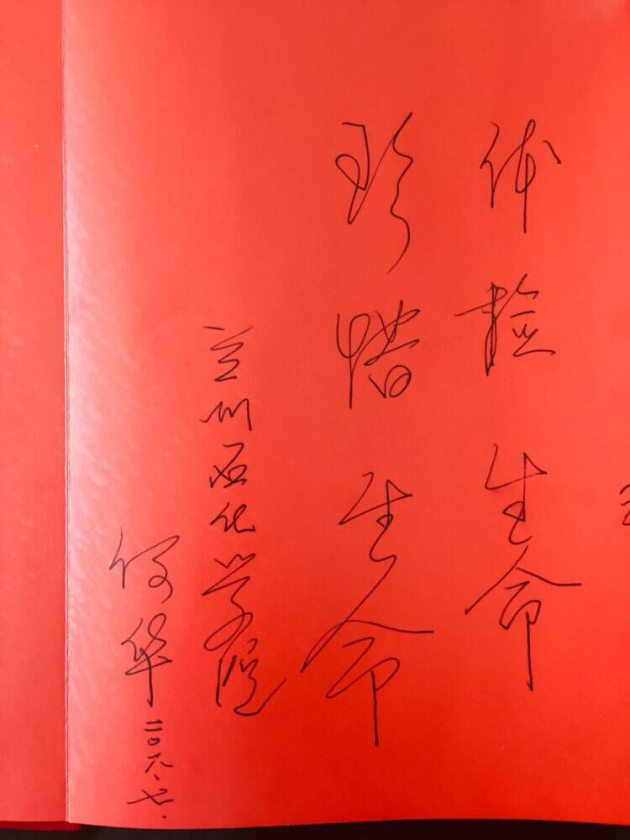 体检生命
珍惜生命
兰州石化学院
何华 二〇一八.七.